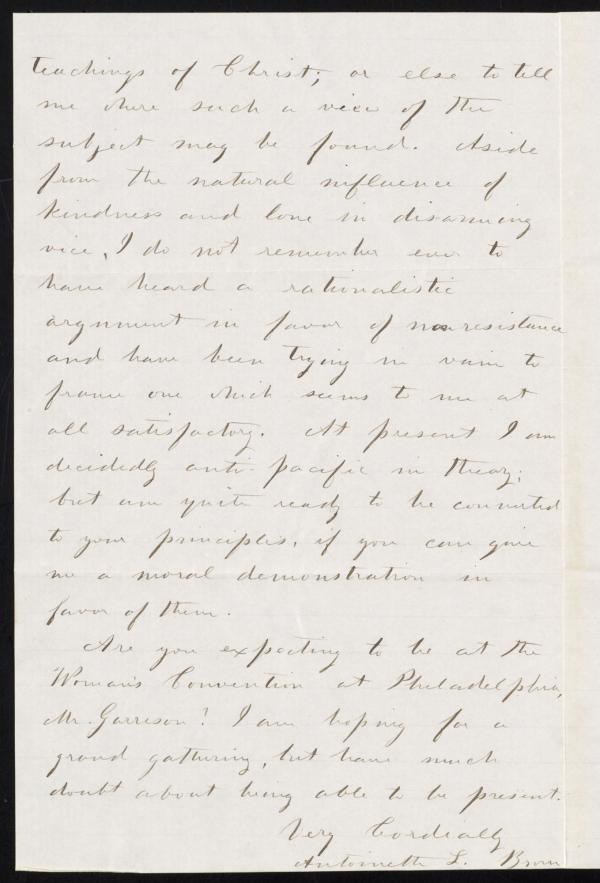 teachings of Christ; or else to tell
me where such a view of the
subject may be found. Aside
from the natural influence of
kindness and love in disarming
vice, I do not remember ever to
have heard a rationalistic
argument in favor of non resistance
and have been trying in vain to
frame one which seems to me at
all satisfactory. At present I am
decidedly anti-pacific in theory;
but am quite ready to be converted
to your principles, if you can give
me a moral demonstration in
favor of them.
Are you expecting to be at the
Woman's Convention at Philadelphia,
Mr. Garrison? I am hoping for a
grand gathering, but have much
doubt about being able to be present.
Very Cordially
Antoinette L. Brown